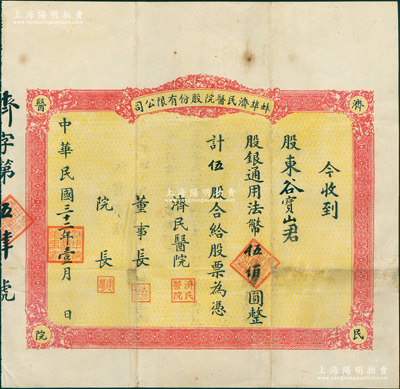 上海陽明拍賣
蚌埠濟民醫院股份有限公司
濟
民
醫
院
今收到
股東谷寶山君
股銀通用法幣伍佰圓整
計伍股合給股票為憑
濟民醫院
董事長
院長
中華民國三十一年壹月 日
濟字第伍號
濟民醫院